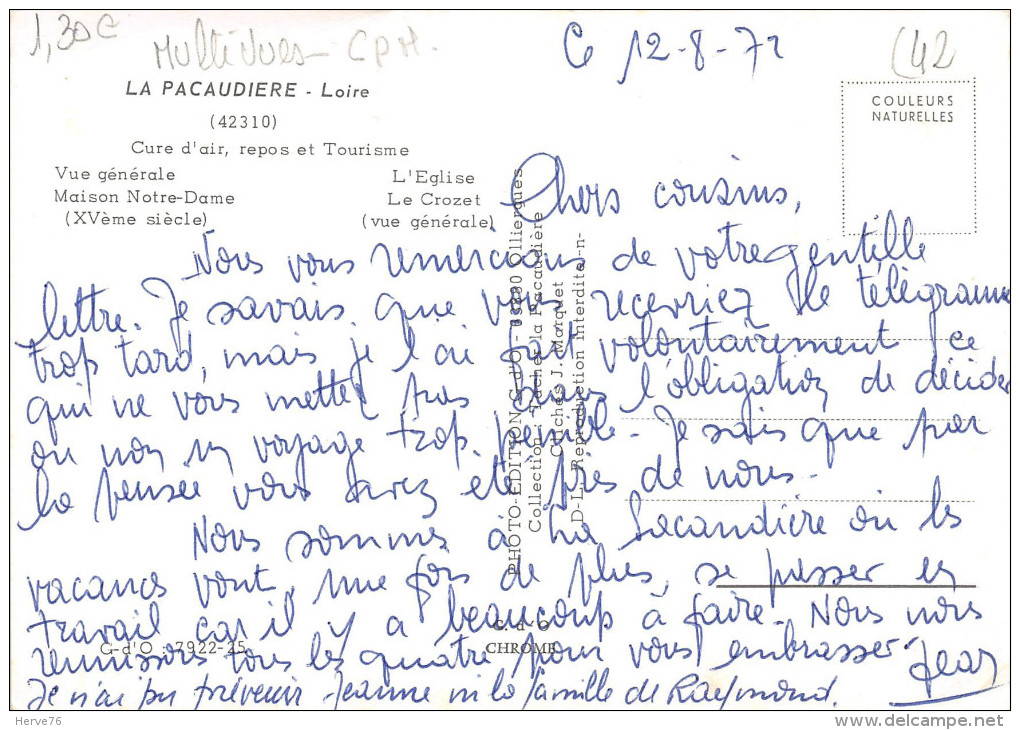 1,30€
Multivues - CPM.
Ce 12-8-72
(42
LA PACAUDIERE - Loire
(42310)
Cure d'air, repos et Tourisme
Vue générale
Maison Notre-Dame
(XVème siècle)
L'Eglise
Le Crozet
(vue générale)
COULEURS
NATURELLES
PHOTO-EDITION G-d'O - Olliergues
Collection la Pacaudière
Clichés J. Marquet
D-L. Reproduction interdite -n-
Chers cousins,
Nous vous remercions de votre gentille
lettre. Je savais que vous recevriez le télégramme
trop tard, mais je l'ai fait volontairement ce
qui ne vous mettez pas dans l'obligation de décider
ou non un voyage trop pénible. Je sais que par
la pensée vous avez été près de nous.
Nous sommes à La Pacaudière où les
vacances vont, une fois de plus, se passer en
travail car il y a beaucoup à faire. Nous nous
réunissons tous les quatre pour vous embrasser
Jean
Je n'ai pu prévenir Jeanne ni la famille de Raymond.
G-d'O : 7922-25
G-d'O
CHROME
Herve76
www.delcampe.net